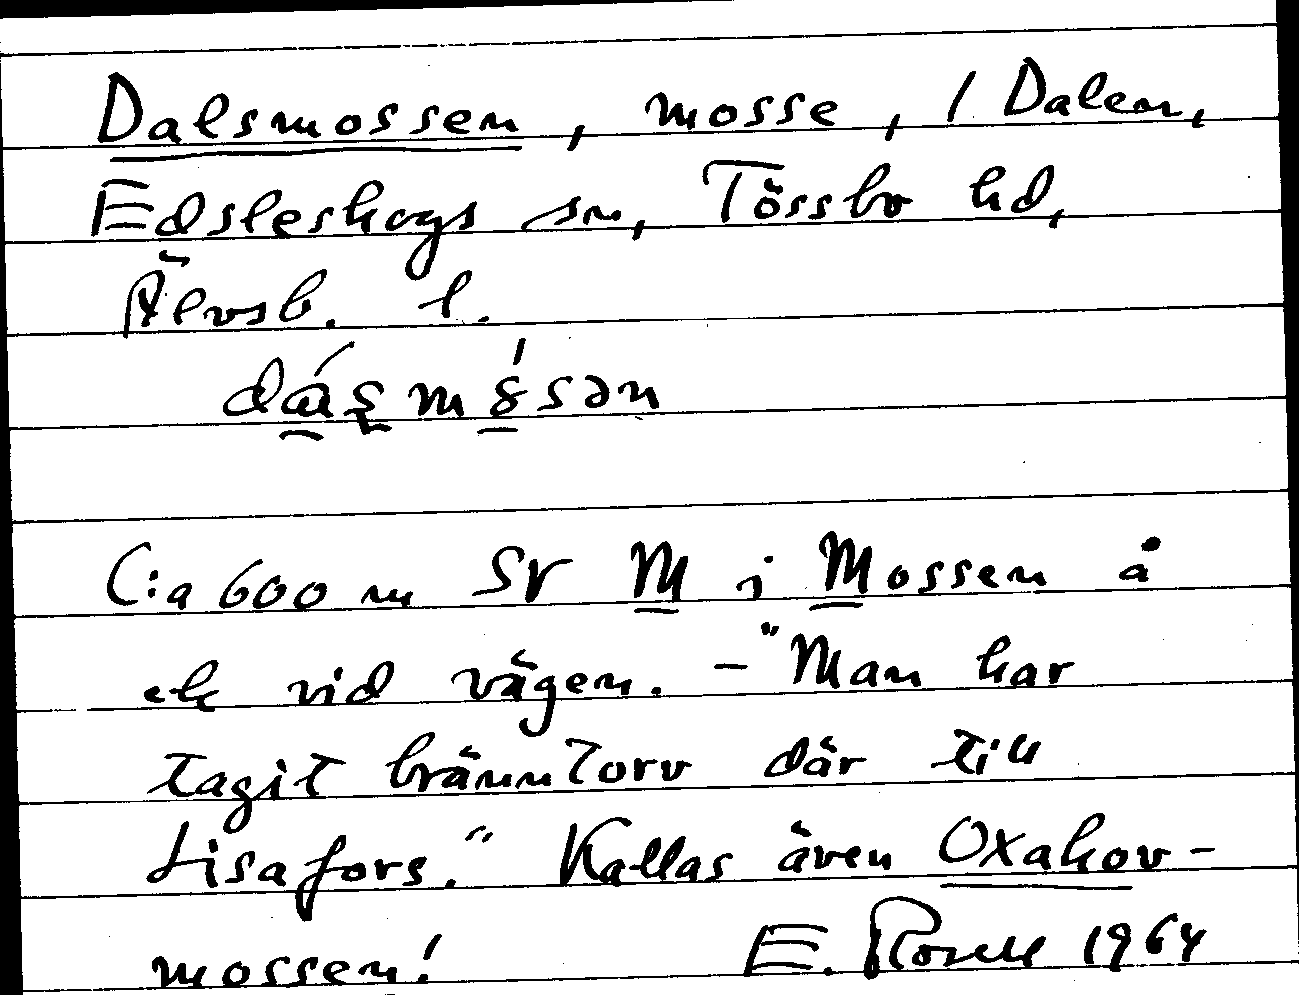 Dalsmossen, mosse, / Dalen,
Edsleskogs sn, Tössbo hd,
Älvsb. l.
C:a 600 m SV M i Mossen å
ek vid vägen. - "Man har
tagit bränntorv där till
Lisafors." Kallas även Oxakov-
mossen! E. Rosell 1964